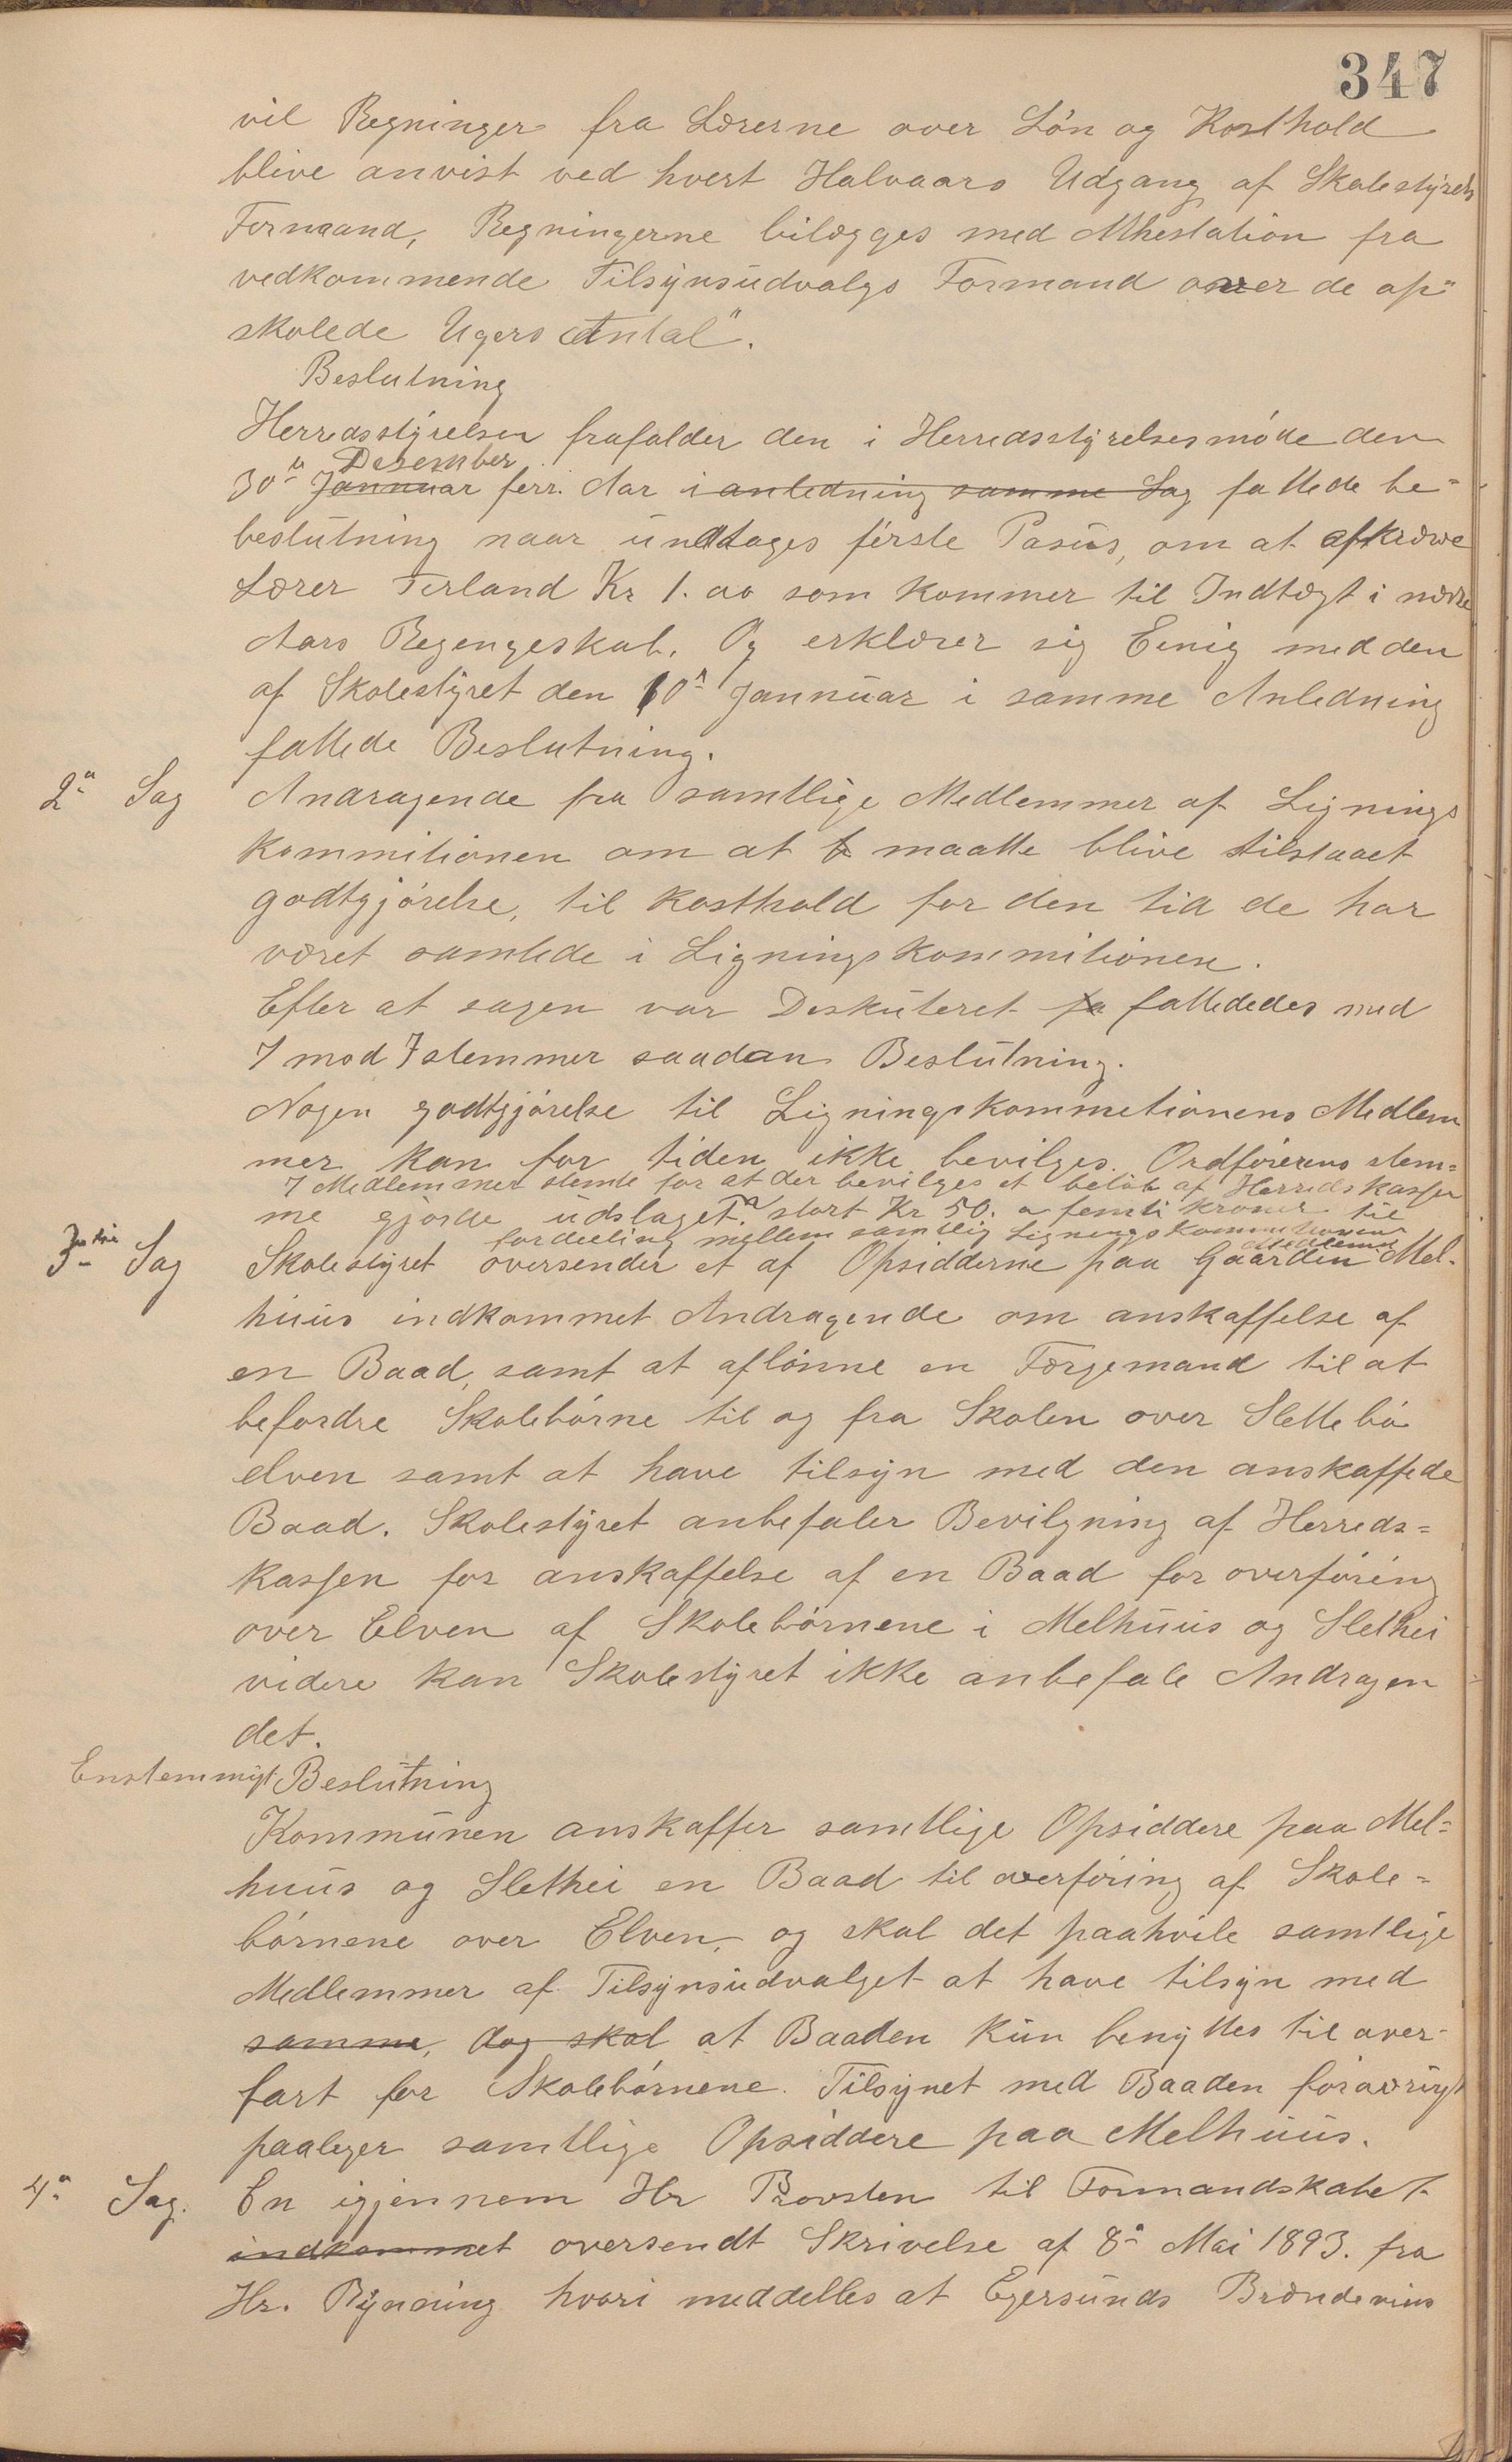 347
vil Regninger fra Lærerne over Lön og Kosthold
blive anvist ved hvert Halvaars Udgang af Skolestyrets
Formand, Regningerne bilægges med Athestation fra
vedkommende Tilsynsudvalgs Formand over de af-
skolede Ugers Antal".
Beslutning
Herredsstyrelsen frafalder den i Herredsstyrelsesmöde den
Desember
30te Jannuar forr. Aar i anledning samme Sag fattede be-
beslutning naar undtages förste Pasus, om at afkræve
Lærer Terland Kr 1.00 som kommer til Indtægt i nævnte
Aars Regengeskab. Og erklærer sig Eenig med den
af Skolestyret den 10de Jannuar i samme Anledning
fattede Beslutning.
2den Sag Andragende fra samtlige Medlemmer af Lignings
kommitionen om at maatte blive tilstaaet
godtgjörelse, til kosthold for den tid de har
været samlede i Ligningskommitionen.
Efter at sagen var Deskuteret fa fattededes med
7 mod 7 stemmer saadan Beslutning.
Nogen godtgjörelse til Ligningskommetionens Medlem
mer kan for tiden ikke bevilges. Ordförerens stem-
7 Medlemmer stemte for at der bevilges et belöb af Herredskassen
me gjorde udslaget. stort Kr 50. a femti kroner til
fordeeling mellem samtlig Ligningskommitionens
Medlemmer
3die Sag Skolestyret oversender et af Opsidderne paa Gaarden Mel-
huus indkommet Andragende om anskaffelse af
en Baad, samt at aflönne en Færgemand til at
befordre Skolebörne til og fra Skolen over Slettebö
elven samt at have tilsyn med den anskaffede
Baad. Skolestyret anbefaler Bevilgning af Herreds-
kassen for anskaffelse af en Baad for overföring
over Elven af Skolebörnene i Melhuus og Slethei
videre kan Skolestyret ikke anbefale Andragen
det.
Enstemmigt Beslutning
Kommunen anskaffer samtlige Opsiddere paa Mel-
huus og Slethei en Baad til overföring af Skole-
börnene over Elven, og skal det paahvile samtlige
Medlemmer af Tilsynsudvalget at have tilsyn med
samme, dog skal at Baaden kun benyttes til over-
fart for Skolebörnene. Tilsynet med Baaden foravrigt
paaleger samtlige Opsiddere paa Melhuus.
4de Sag. En igjennem Hr Provsten til Formandskabet
indkommet oversendt Skrivelse af 8de Mai 1893. fra
Hr. Rynning hvori meddelles at Egersunds Brændevins